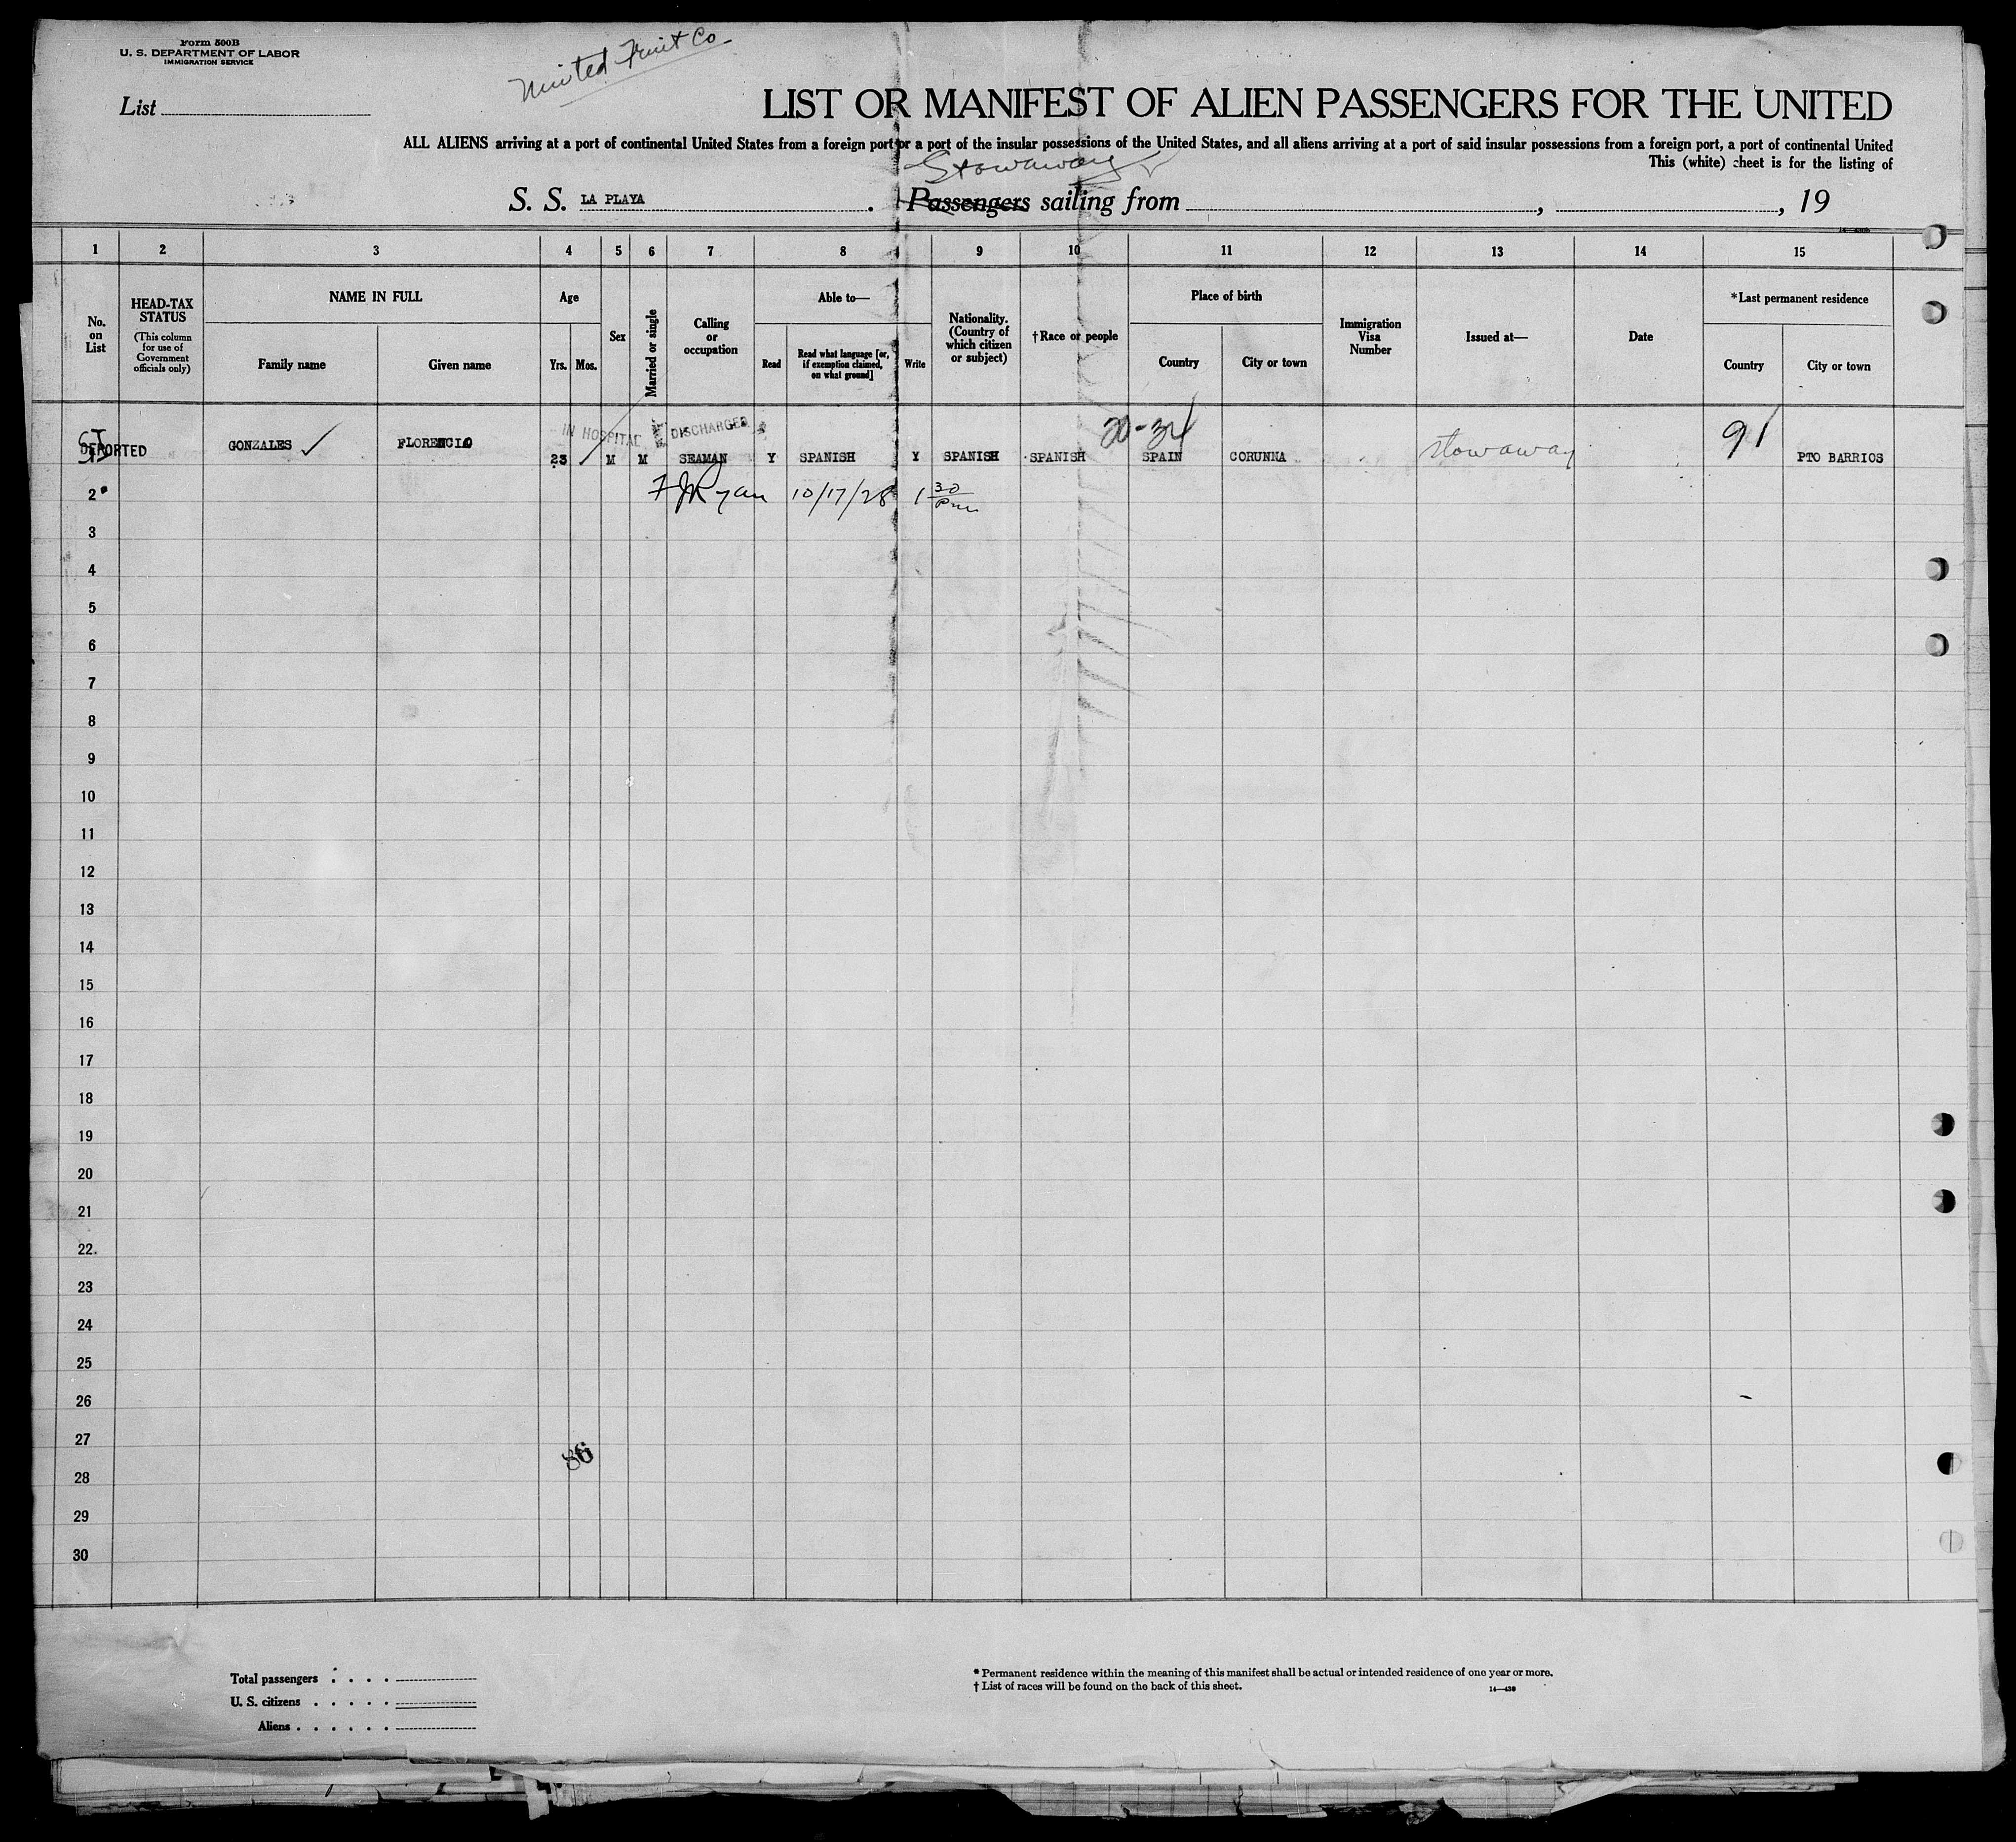 Form 500B
U. S. DEPARTMENT OF LABOR
IMMIGRATION SERVICE
United Fruit Co
List
LIST OR MANIFEST OF ALIEN PASSENGERS FOR THE UNITED
ALL ALIENS arriving at a port of continental United States from a foreign port or a port of the insular possessions of the United States, and all aliens arriving at a port of said insular possessions from a foreign port, a port of continental United
This (white) sheet is for the listing of
Stowaway
S. S. LA PLAYA. Passengers sailing from , , 19
1 2 3 4 5 6 7 8 9 10 11 12 13 14 15
No. on List
HEAD-TAX STATUS
(This column for use of Government officials only)
NAME IN FULL
Family name Given name
Age
Yrs. Mos.
Sex
Married or single
Calling or occupation
Able to—
Read
Read what language [or, if exemption claimed, on what ground]
Write
Nationality. (Country of which citizen or subject)
†Race or people
Place of birth
Country City or town
Immigration Visa Number
Issued at—
Date
*Last permanent residence
Country City or town
IN HOSPITAL DISCHARGED 20-34 91
DEPORTED GONZALES FLORENCIO 23 M M SEAMAN Y SPANISH Y SPANISH SPANISH SPAIN CORUNNA stowaway PTO BARRIOS
2 F J Ryan 10/17/28 1 30 Pm
3
4
5
6
7
8
9
10
11
12
13
14
15
16
17
18
19
20
21
22
23
24
25
26
27
86
28
29
30
Total passengers
U. S. citizens
Aliens
* Permanent residence within the meaning of this manifest shall be actual or intended residence of one year or more.
† List of races will be found on the back of this sheet.
14—430